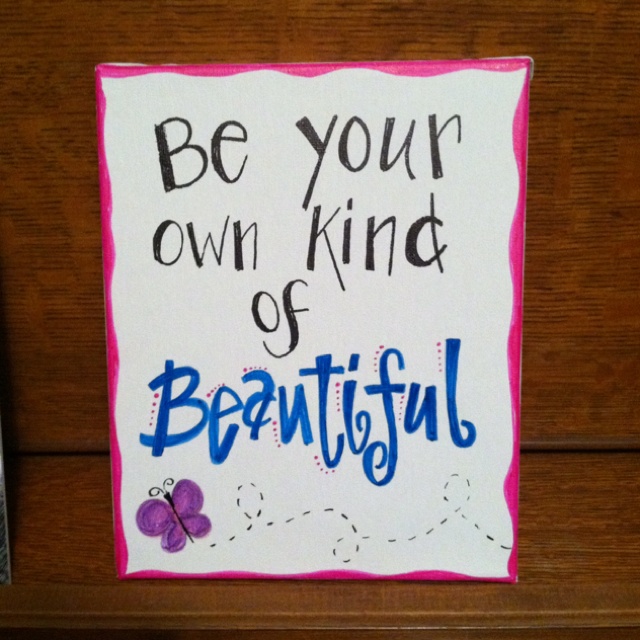 Be your
own kind
of
Beautiful